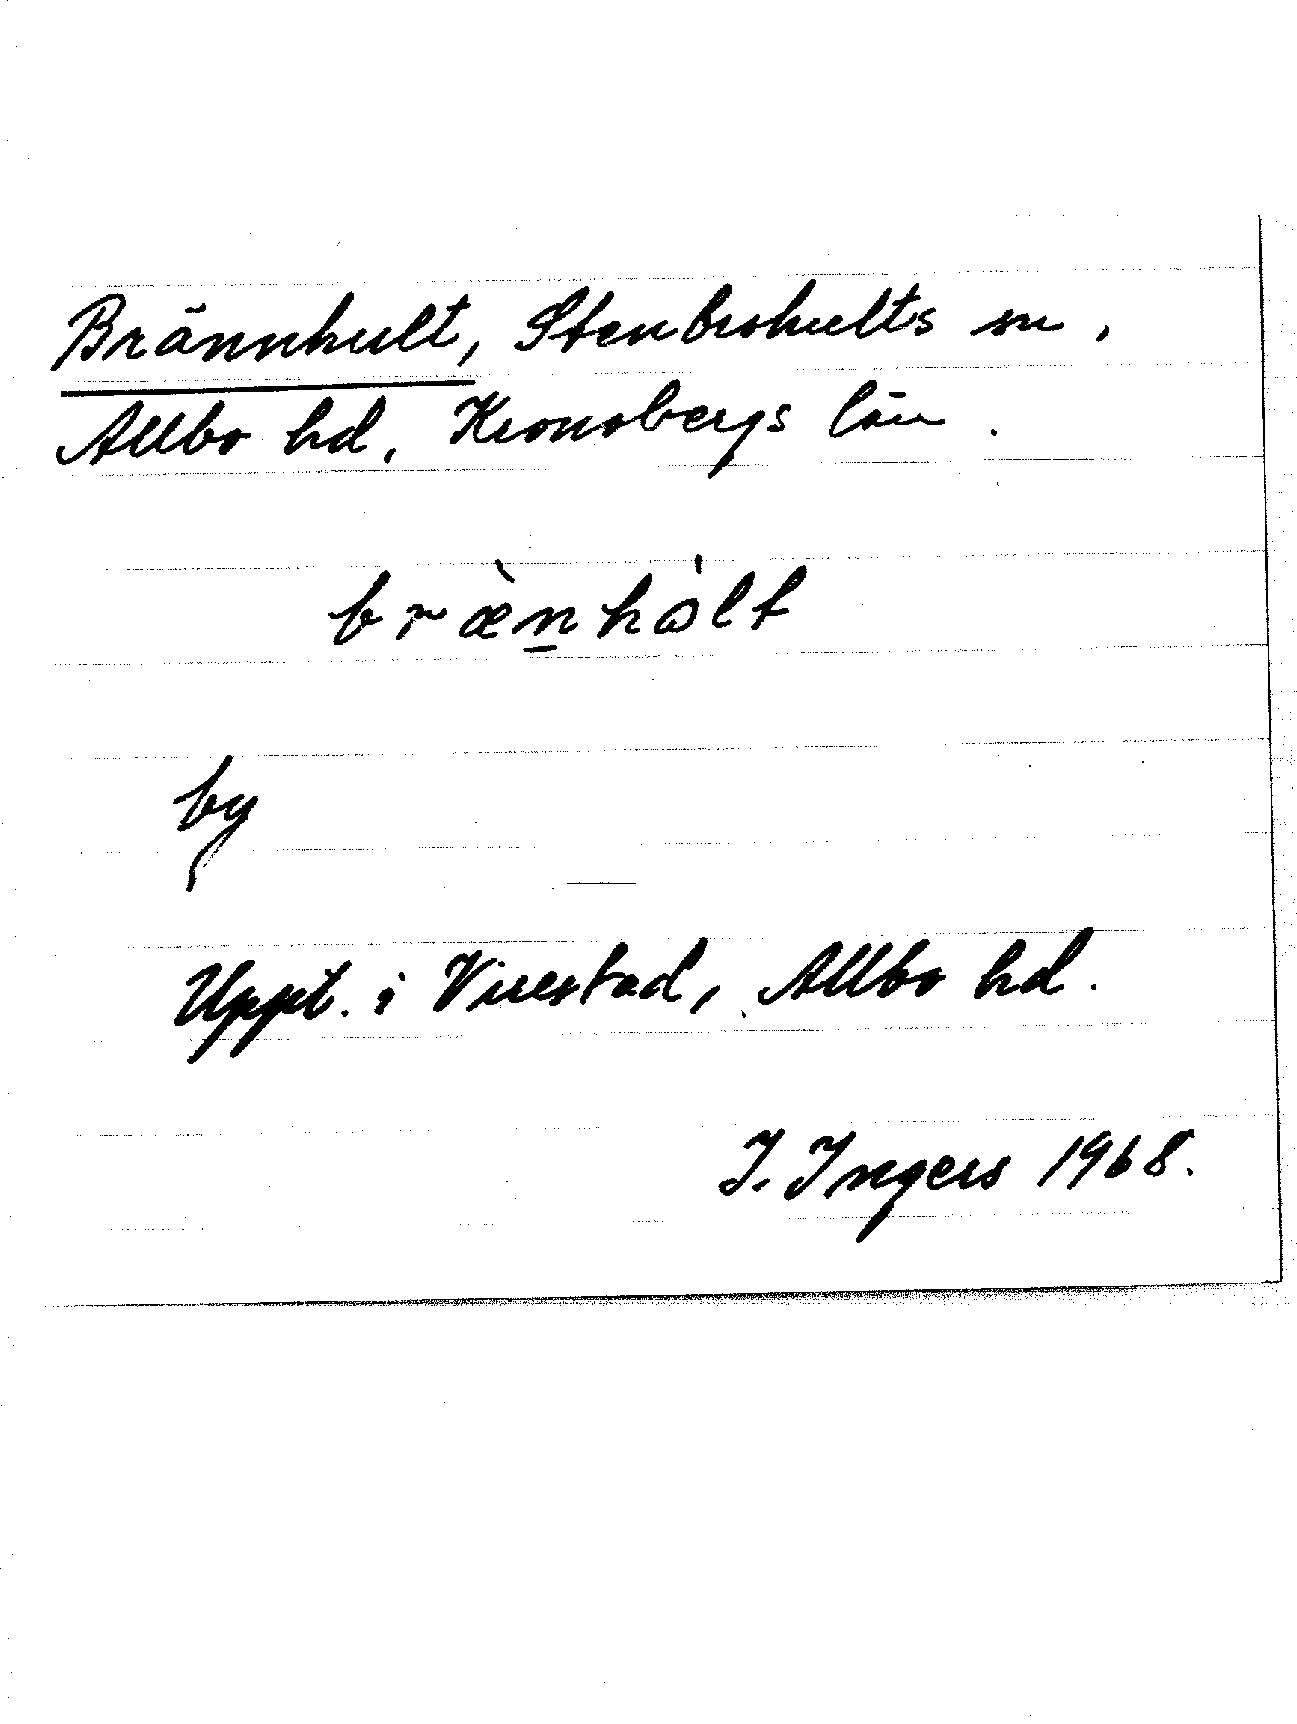 Brännhult, Stenbrohults sn.
Allbo hd. Kronobergs län.
bræ̀nhòlt
by
Uppt. i Virestad, Allbo hd.
I. Ingers 1968.